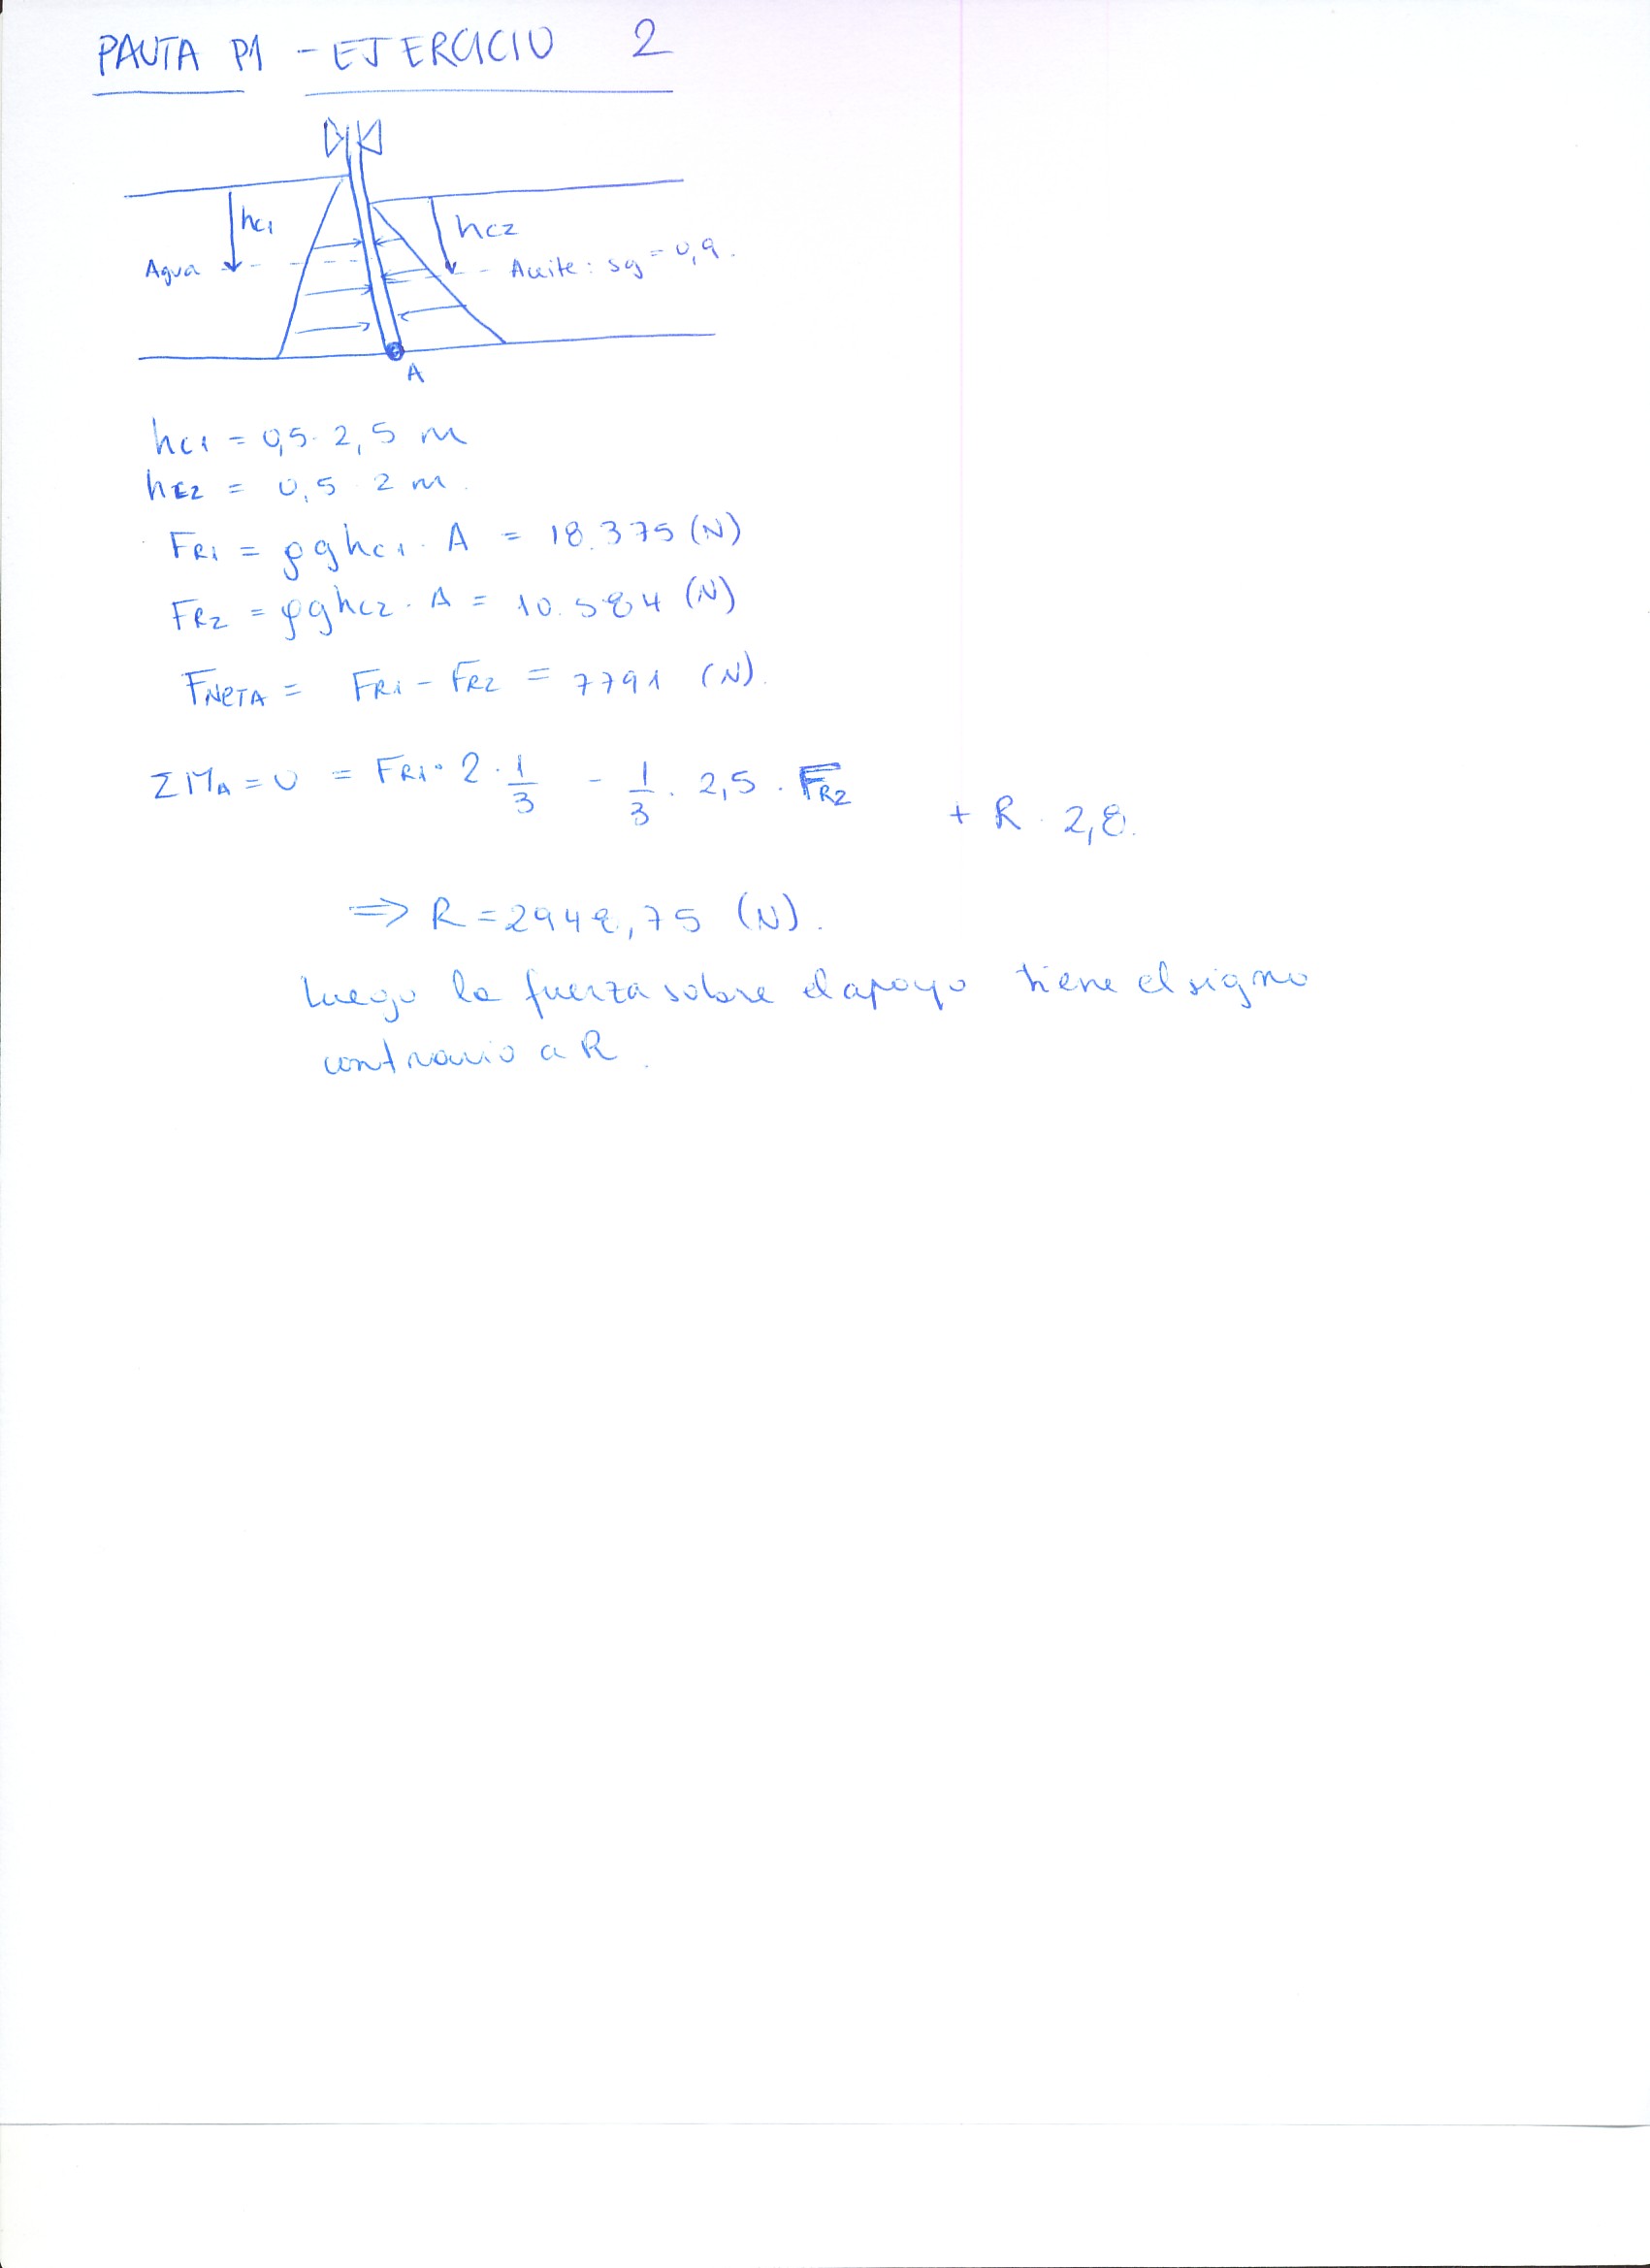 PAUTA P1 - EJERCICIO 2
hc1
hc2
Agua
Aceite: sg = 0,9.
A
hc1 = 0,5 · 2,5 m
hc2 = 0,5 · 2 m.
FR1 = ρghc1 · A = 18.375 (N)
FR2 = ρghc2 · A = 10.584 (N)
FNETA = FR1 - FR2 = 7791 (N).
ΣMA = 0 = FR1 · 2 · 1/3 - 1/3 · 2,5 · FR2 + R · 2,8.
⇒ R = 2948,75 (N).
Luego la fuerza sobre el apoyo tiene el signo
contrario a R.